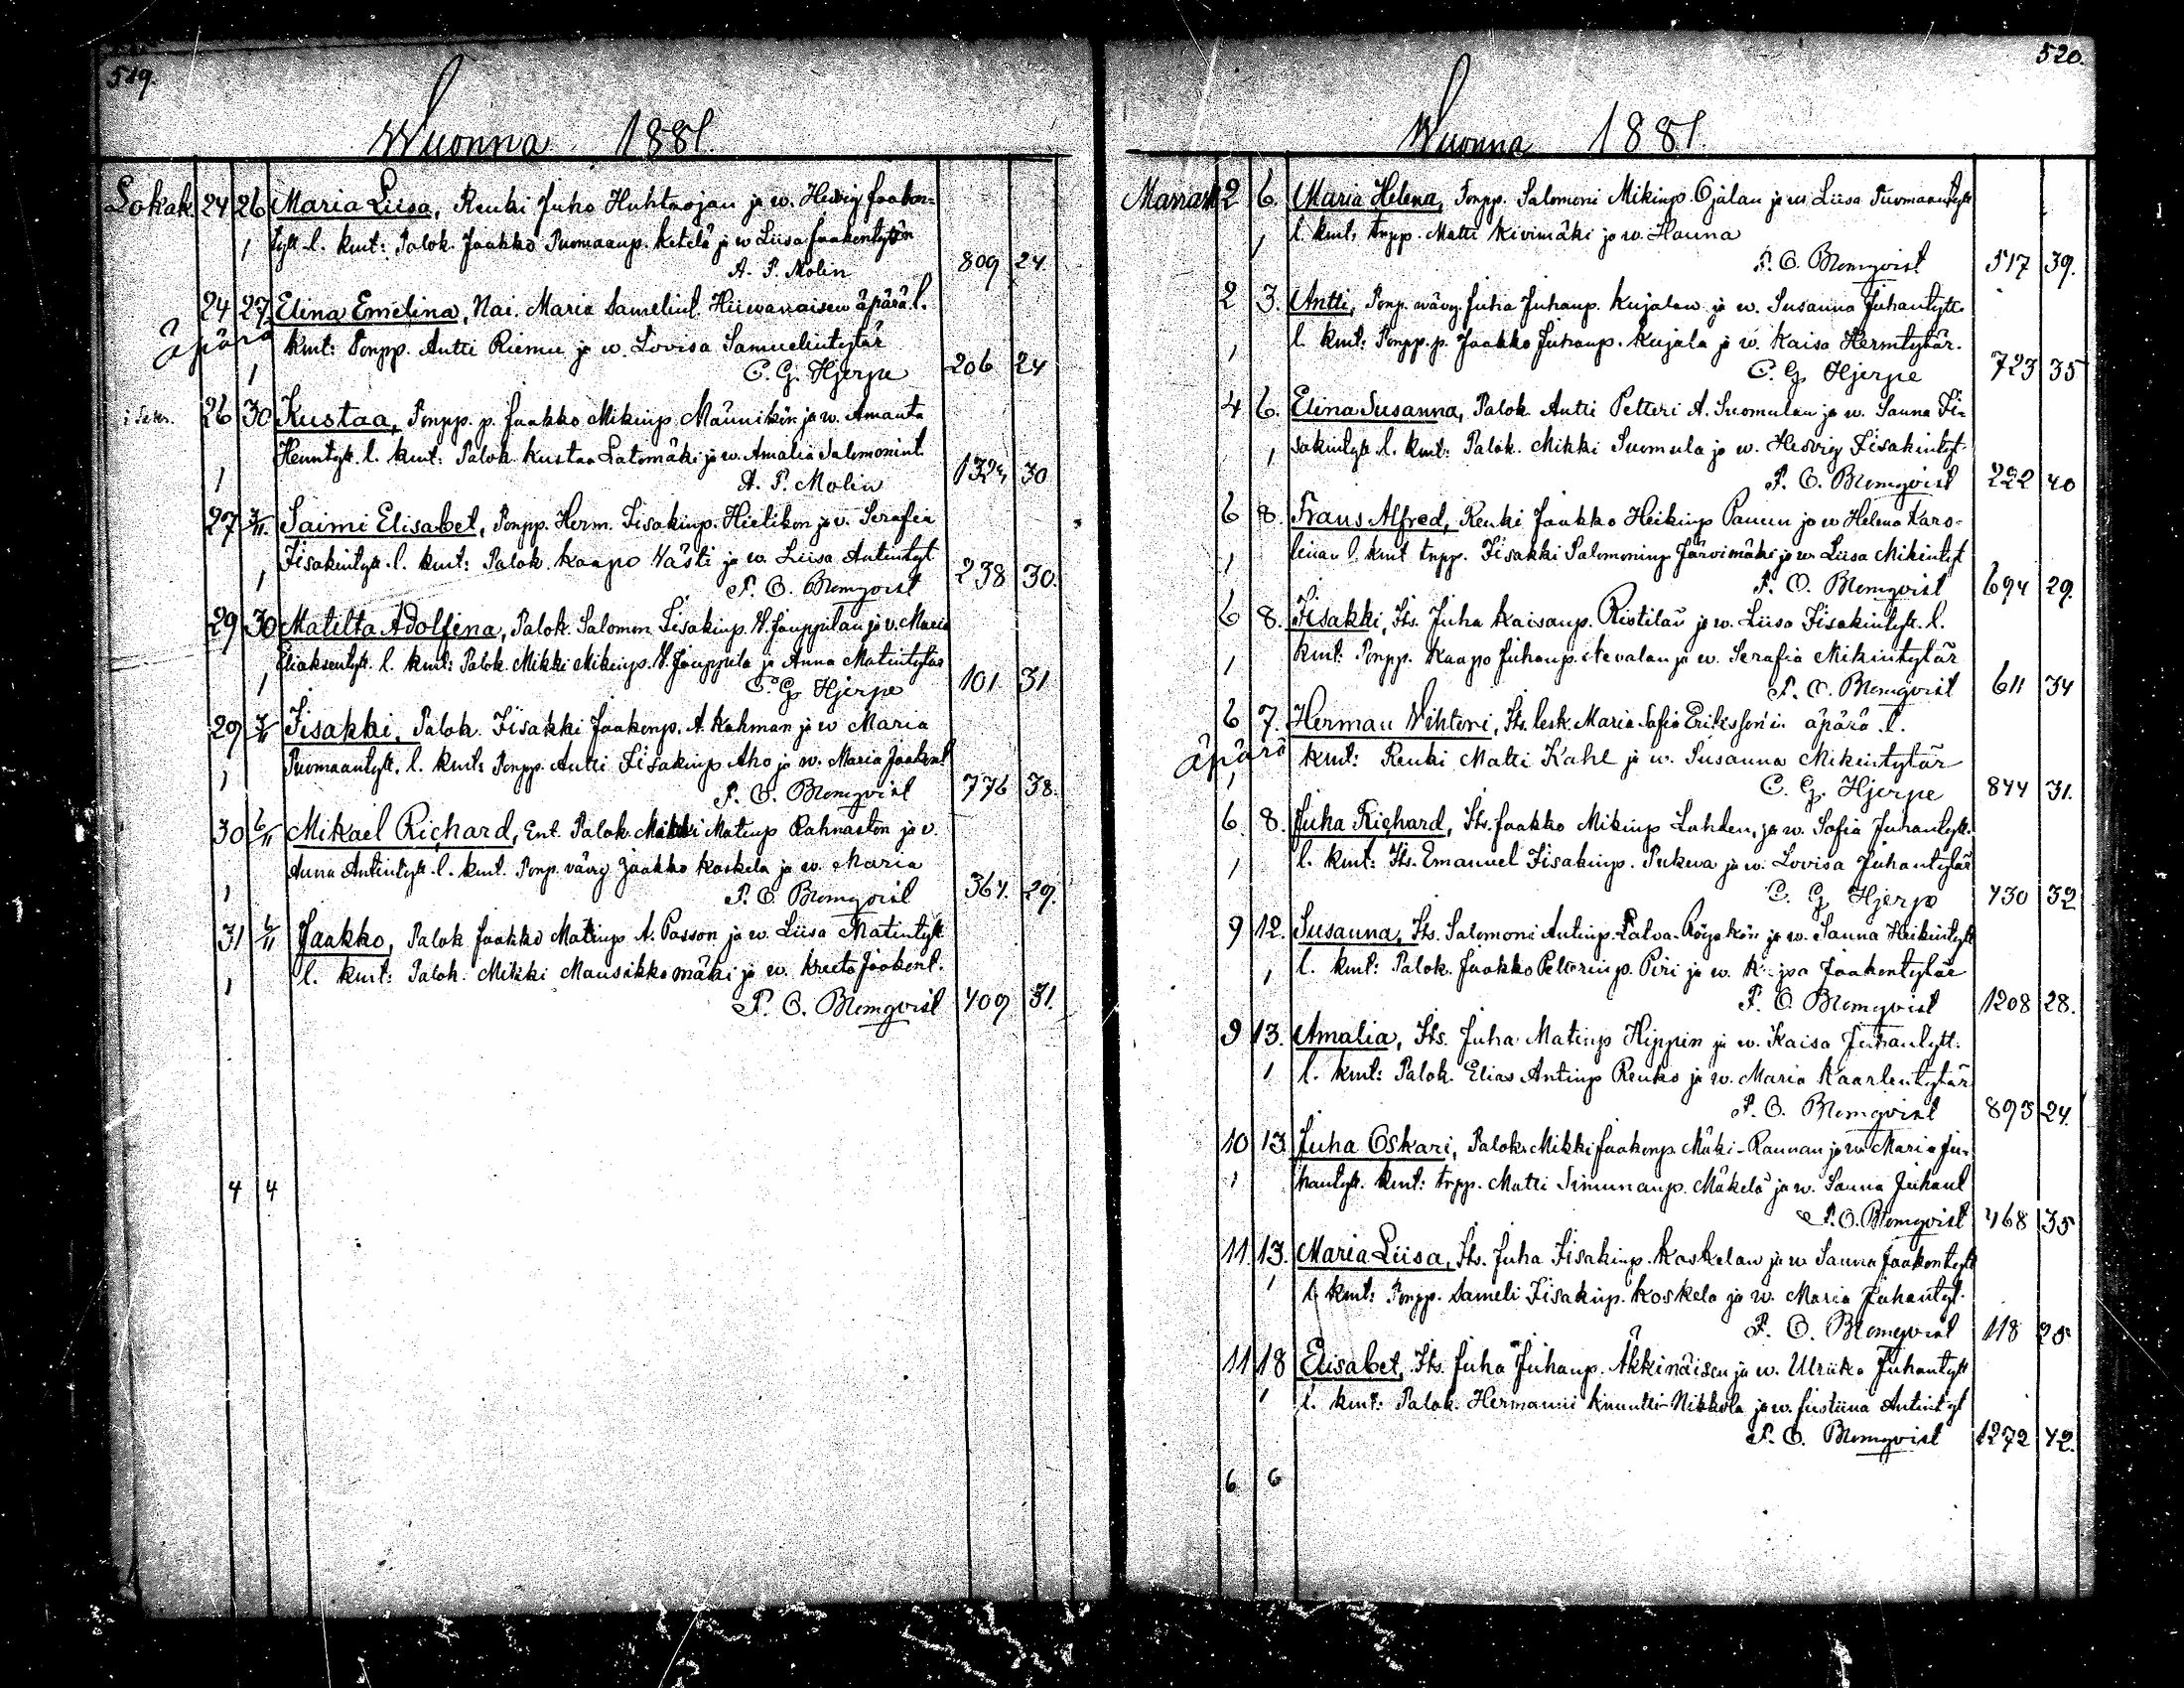 519.
Wuonna 1881.
Lokak. 24 26 Maria Liisa, Renki Juho Huhtaojan ja w. Hedvig Jaakon=
1 tytt. l. kmt: Palok. Jaakko Tuomaanp. Ketelä ja w Liisa Jaakontytön
A. P. Molin 809 24.
24 27. Elina Emelina, Nai. Maria Samelint. Hiiwanaisen äpärä l.
äpärä kmt: Tonpp. Antti Riemu ja w. Lovisa Samuelintytär
1 C. G. Hjerpe 206 24
26 30 Kustaa, Tonpp. p. Jaakko Mikinp. Männikön ja w. Amanta
Hermtytt. l. kmt: Palok. Kustaa Latomäki ja w. Amalia Salomonint.
1 A. P. Molin 30
27 3/11. Saimi Elisabet, Tonpp. Herm. Iisakinp. Hietikon ja v. Serafia
Iisakintytt. l. kmt: Palok. Kaapo Västi ja w. Liisa Antintyt.
1 P. O. Blomqvist 238 30.
29 30 Matilta Adolfina, Palok. Salomon Iisakinp. W. Jouppilan ja v. Maria
Eliaksentytt. l. kmt: Palok. Mikki Mikinp. W. Jouppila ja Anna Matintytär
1 C. G. Hjerpe 101. 31
29 Iisakki, Palok. Iisakki Jaakonp. A. Kahman ja w Maria
Tuomaantytt. l. kmt: Tonpp. Antti Iisakinp. Aho ja w. Maria Jaakont
1 P. O. Blomqvist 776 38.
30 6/11 Mikael Richard, Ent. Palok. Mikki Matinp Rahnaston ja v.
Anna Antintytt. l. kmt. Tonp. vävy Jaakko Koskela ja w. Maria
1 P. O. Blomqvist 367. 29.
31 6/11 Jaakko, Palok Jaakko Matinp A. Passon ja w. Liisa Matintytt
1 l. kmt: Palok. Mikki Mansikkamäki ja w. Kreeta Jaakont.
P. O. Blomqvist 409 31.
4 4
520.
Wuonna 1881.
Marrask 2 6. Maria Helena, Tonpp. Salomoni Mikinp. Ojalan ja w. Liisa Tuomaantytt
1 l. kmt, tnpp. Matti Kivimäki ja w. Hanna
P. O. Blomqvist 517 39.
2 3. Antti, Tonp. wävy Juha Juhanp. Kujalan ja w. Susanna Juhantytt.
1 l. kmt: Tonpp. p. Jaakko Juhanp. Kujala ja w. Kaisa Hermtytär.
C. G. Hjerpe 723 35
4 6. Elina Susanna, Palok. Antti Petteri A. Luomulan ja w. Sanna Ii-
1 sakintytt. l. kmt: Palok. Mikki Luomula ja w. Hedvig Iisakintyt.
P. O. Blomqvist 222 40
6 8. Frans Alfred, Renki Jaakko Heikinp Panun ja w Helena Karo-
1 liinan l. kmt tnpp. Iisakki Salomoninp Järvimäki ja w. Liisa Mikintyt
P. O. Blomqvist 694 29.
6 8. Iisakki, Its. Juha Kaisanp. Ristilän ja w. Liisa Iisakintytt. l.
1 kmt: Tonpp. Kaapo Juhanp. Nevalan ja w. Serafia Mikintytär
P. O. Blomqvist 611 34
6 7. Herman Wihtori, Its. lesk. Maria Sofia Erikssonin äpärä l.
äpärä kmt: Renki Matti Kahl ja w. Susanna Mikintytär
1 C. G. Hjerpe 844 31.
6 8. Juha Richard, Its. Jaakko Mikinp Lahden, ja w. Sofia Juhantytt.
1 l. kmt: Its. Emanuel Iisakinp. Pukeva ja w. Lovisa Juhantytär
C. G Hjerpe 430 32
9 12. Susanna, Its. Salomoni Antinp. ja w. Sanna Heikintytt
1 l. kmt: Palok. Jaakko Petterinp. Piri ja w. Jaakontytär
P. O. Blomqvist 1208 28.
9 13. Amalia, Its. Juha Matinp Hippin ja w. Kaisa Juhantytt.
1 l. kmt: Palok. Elias Antinp Renko ja w. Maria Kaarlentytär
P. O. Blomqvist 893 24.
10 13. Juha Oskari, Palok. Mikki Jaakonp. Mäki-Rannan ja w Maria Ju-
1 hantytt. kmt: tnpp. Matti Simunanp. Mäkelä ja w. Sanna Juhant
P. O. Blomqvist 468 35
11. 13. Maria Liisa, Its. Juha Iisakinp. Koskelan ja w Sanna Jaakontytt
1 l. kmt: Tonpp. Sameli Iisakinp. Koskela ja w. Maria Juhantyt.
P. O. Blomqvist 118 25
11 18 Elisabet, Its. Juha Juhanp. Äkkinäisen ja w. Ulriika Juhantytt
1 l. kmt: Palok. Hermanni Knuutti-Nikkola ja w. Justiina Antintyt
P. O. Blomqvist 1272 42.
6 6